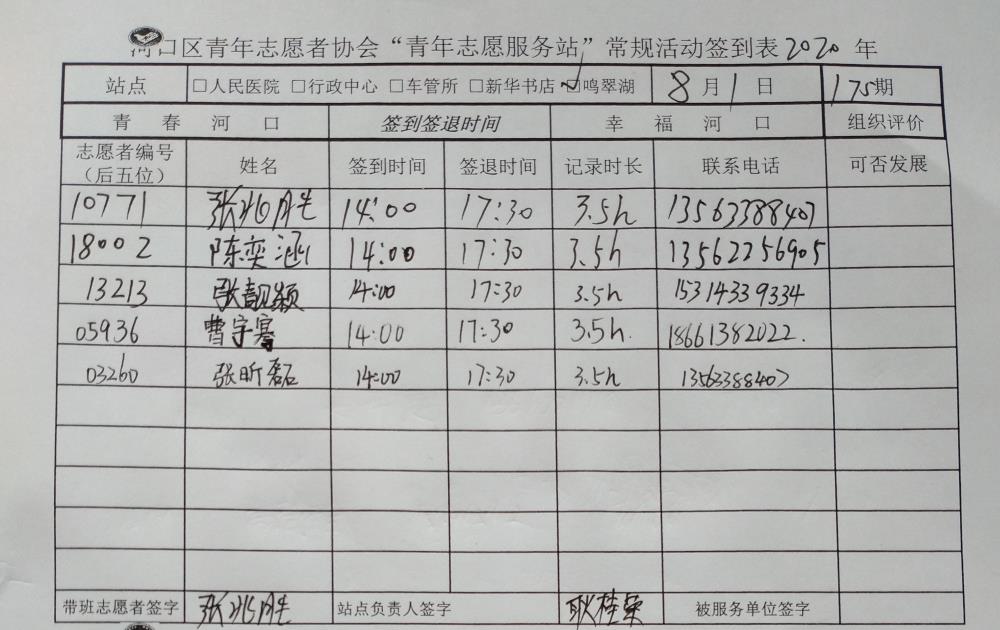 河口区青年志愿者协会“青年志愿服务站”常规活动签到表2020年
站点 □人民医院 □行政中心 □车管所 □新华书店 ☑鸣翠湖 8月1日 175期
青春河口 签到签退时间 幸福河口 组织评价
志愿者编号（后五位） 姓名 签到时间 签退时间 记录时长 联系电话 可否发展
10771 张兆胜 14:00 17:30 3.5h 13563388407
18002 陈奕涵 14:00 17:30 3.5h 13562256905
13213 张靓颖 14:00 17:30 3.5h 15314339334
05936 曹宇骞 14:00 17:30 3.5h. 18661382022.
03260 张昕磊 14:00 17:30 3.5h 13563388407
带班志愿者签字 张兆胜 站点负责人签字 耿桂荣 被服务单位签字